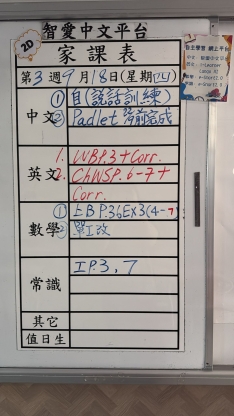 智愛中文平台
2D
家課表
第3週9月18日(星期四)
中文 ①自(說話訓練)
② Padlet 簿完成
英文 1. WBP.3+Corr.
2. ChWSP.6-7+
Corr.
數學 ①上BP.36Ex3(4-7)
② 單I改
常識 IP.3,7
其它
值日生
自主學習 網上平台